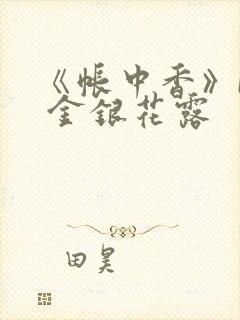 《帐中香》
金银花露
田昊